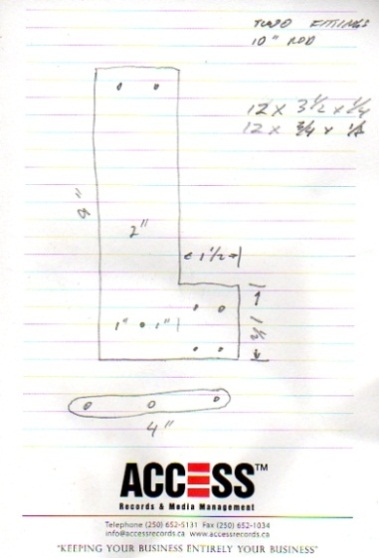 TWO FITTINGS
10" ROD
12 x 3 1/2 x 1/4
12 x 3/4 x
9"
2"
1 1/2
1" 1"
4"
ACCESS™
Records & Media Management
Telephone (250) 652-5131 Fax (250) 652-1034
info@accessrecords.ca www.accessrecords.ca
"KEEPING YOUR BUSINESS ENTIRELY YOUR BUSINESS"